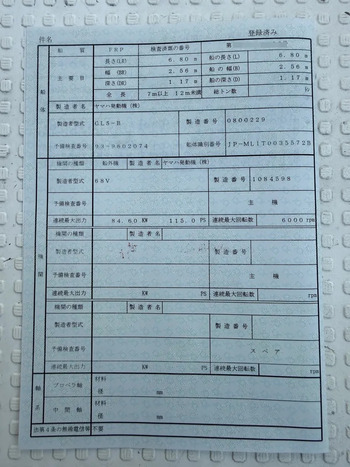 件名 登録済み
船質 FRP 検査済票の番号 第
主要目 長さ(LR) 6.80 m 船の長さ(L) 6.80 m
幅(BM) 2.56 m 船の幅(B) 2.56 m
深さ(DM) 1.17 m 船の深さ(D) 1.17 m
全長 7m以上 12m未満 総トン数
船体
製造者名 ヤマハ発動機(株)
製造者型式 製造番号 0800229
予備検査番号 船体識別番号
機関の種類 船外機 製造者名 ヤマハ発動機(株)
製造者型式 68V 製造番号 1084598
予備検査番号 主機
連続最大出力 84.60 KW 115.0 PS 連続最大回転数 6000 rpm
機関の種類 製造者名
製造者型式 製造番号
予備検査番号 主機
機関
連続最大出力 KW PS 連続最大回転数 rpm
機関の種類 製造者名
製造者型式 製造番号
予備検査番号 スペア
連続最大出力 KW PS 連続最大回転数 rpm
プロペラ軸 材料
径 mm
中間軸 材料
径 mm
法第4条の無線電信等 不要